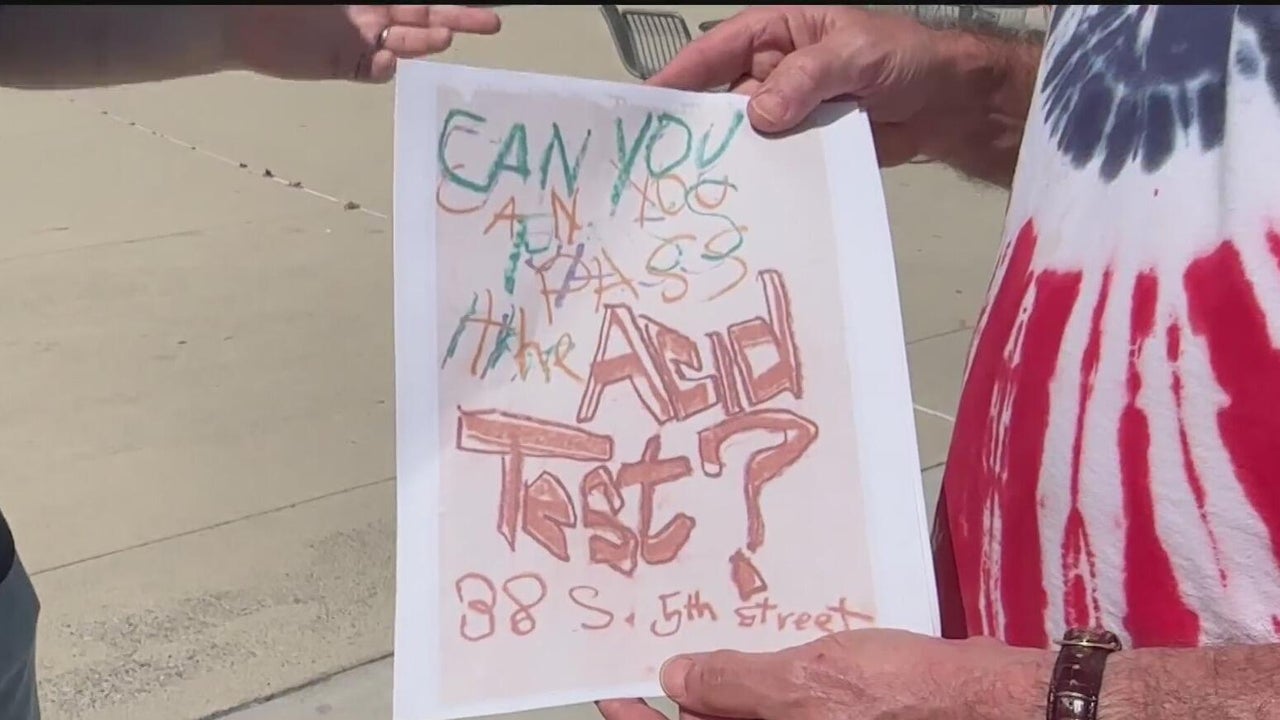 CAN YOU
CAN YOU
PASS
PASS
the Acid
Test?
38 S. 5th street